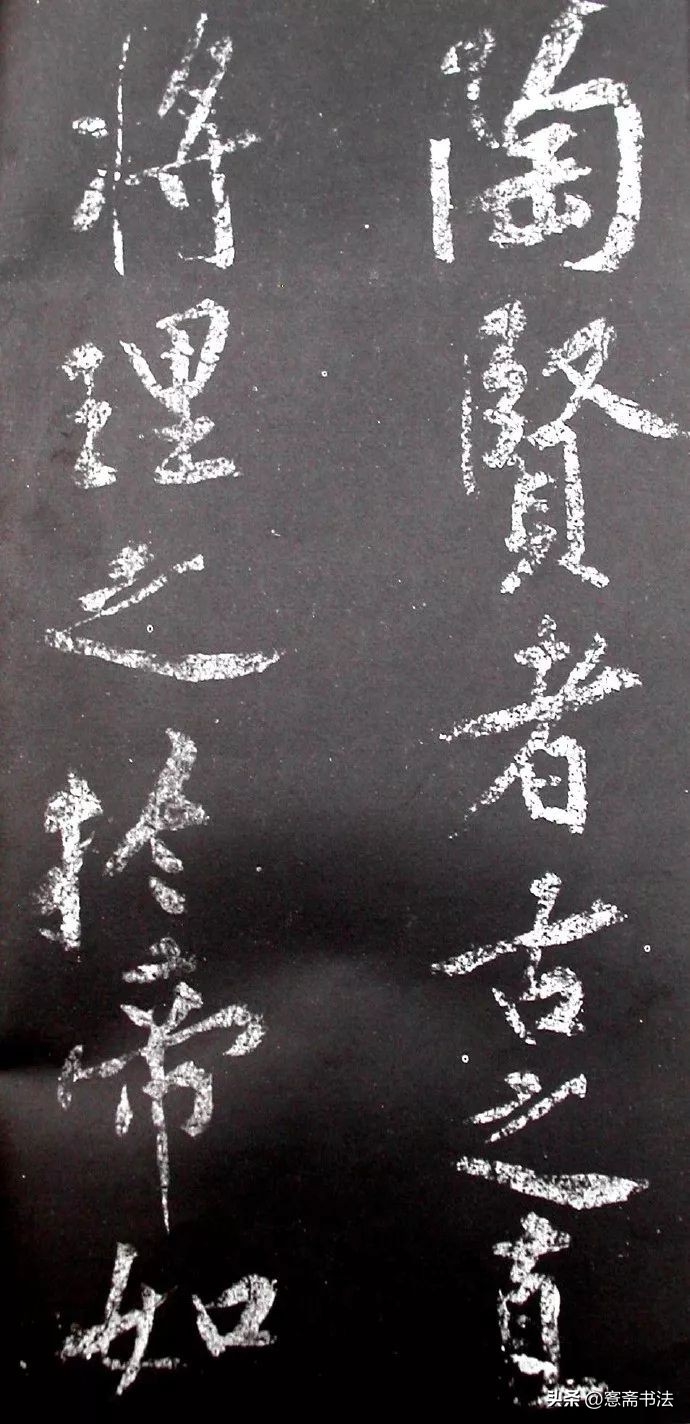 陶賢者古之直
將理之於帝如
头条@窓斋书法